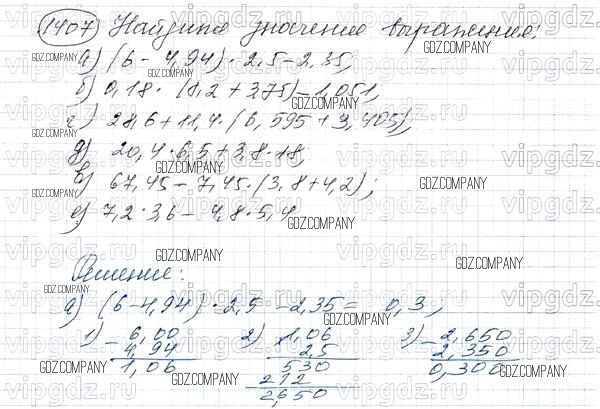 1407 Найдите значение выражения:
а) (6 - 4,94) · 2,5 - 2,35;
б) 0,18 · (8,2 + 3,75) - 1,051;
г) 28,6 + 11,4 · (6,595 + 3,405);
д) 20,4 · 6,5 + 3,8 · 18;
в) 67,45 - 7,45 · (3,8 + 4,2);
е) 7,2 · 3,6 - 4,8 · 5,4
Решение:
а) (6 - 4,94) · 2,5 - 2,35 = 0,3;
1) - 6,00 2) × 1,06 3) - 2,650
4,94 2,5 2,350
1,06 530 0,300
212
2,650
vipgdz.ru
GDZ.COMPANY